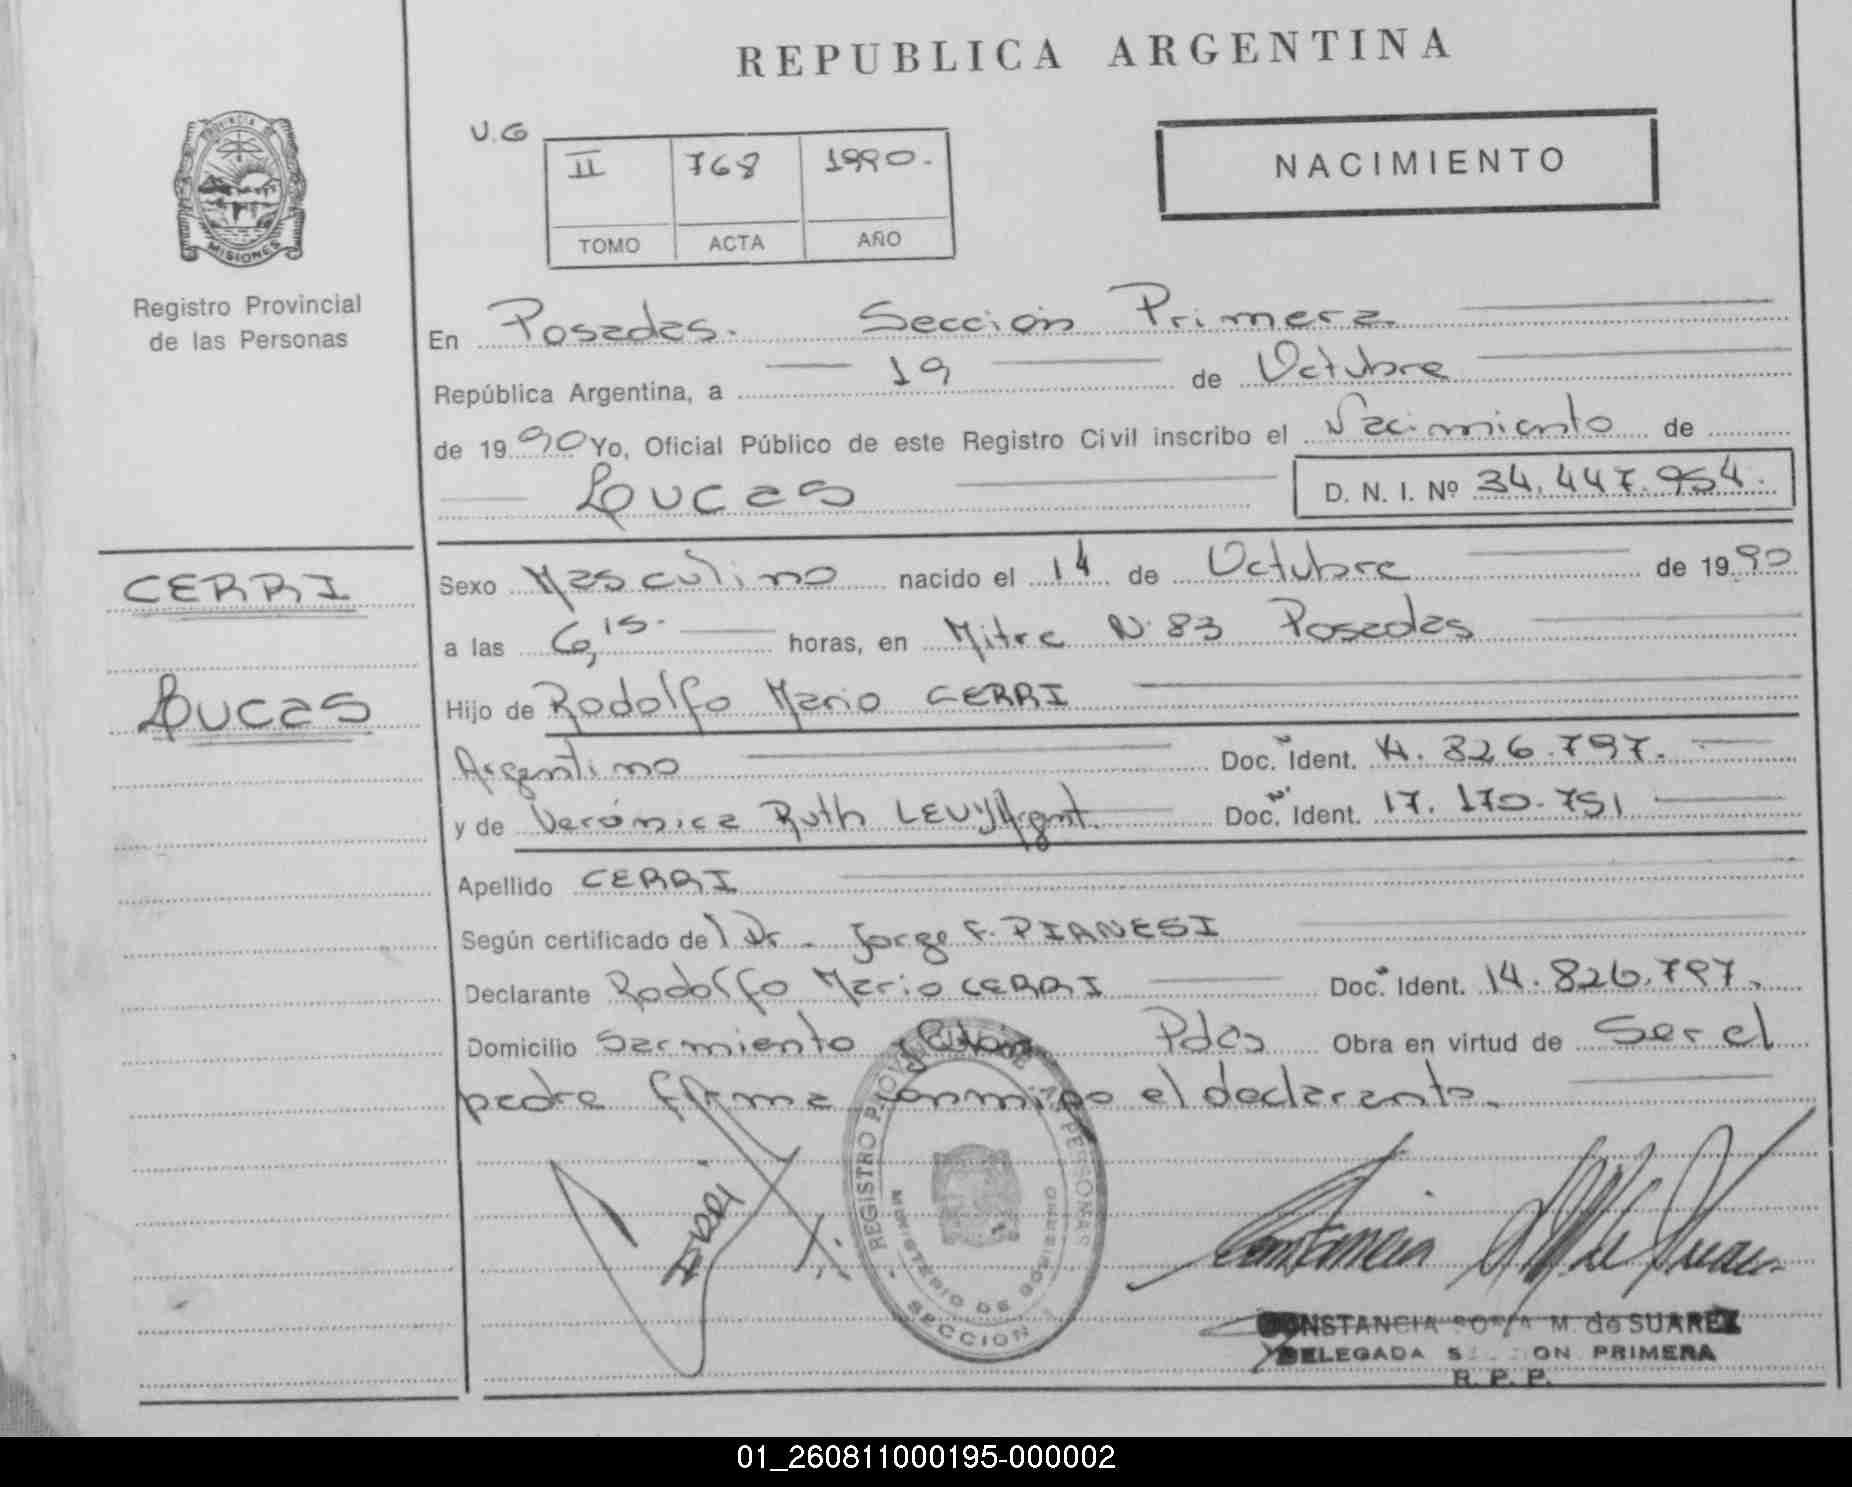 REPUBLICA ARGENTINA
PROVINCIA DE
MISIONES
Registro Provincial
de las Personas
U.G
II 768 1990.
TOMO ACTA AÑO
NACIMIENTO
En Posadas. Sección Primera
República Argentina, a 19 de Octubre
de 1990 Yo, Oficial Público de este Registro Civil inscribo el Nacimiento de
Lucas D. N. I. Nº 34.447.954.
CERRI
Lucas
Sexo Masculino nacido el 14 de Octubre de 1990
a las 6,15. horas, en Mitre N. 83 Posadas
Hijo de Rodolfo Mario CERRI
Argentino Doc. Ident. 14.826.797.
y de Verónica Ruth LEVY Argnt. Doc. Ident. 17.170.751
Apellido CERRI
Según certificado del Dr. Jorge F. PIANESI
Declarante Rodolfo Mario CERRI Doc. Ident. 14.826.797.
Domicilio Sarmiento Pdas Obra en virtud de Ser el
padre firma conmigo el declarante.
REGISTRO PROVINCIAL DE LAS PERSONAS
MINISTERIO DE GOBIERNO
SECCION
CERRI
CONSTANCIA M. de SUAREZ
DELEGADA SECCION PRIMERA
R. P. P.
01_260811000195-000002